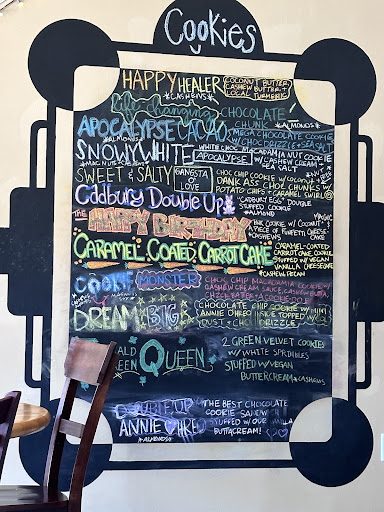 Cookies
HAPPY HEALER COCONUT BUTTER,
*CASHEWS* CASHEW BUTTER +
LOCAL TURMERIC
Life-changing CHOCOLATE
CHUNK *ALMONDS*
APOCALYPSE CACAO MEGA CHOCOLATE COOKIE
*ALMONDS* W/ CHOC DRIZZLE + SEA SALT
SNOW WHITE WHITE CHOC MACADAMIA NUT COOKIE
*MAC NUTS + CASHEW* APOCALYPSE W/ CASHEW CREAM +
SEA SALT
SWEET & SALTY GANGSTA O' LOVE CHOC CHIP COOKIE W/ COCONUT
DANK ASS CHOC CHUNKS W/
POTATO CHIPS + CARAMEL SWIRL
Cadbury Double Up "CADBURY EGG" DOUBLE
STUFFED COOKIE
*ALMOND
THE HAPPY BIRTHDAY MAGIC
PINK COOKIE W/ COOKIE
PIECE OF FUNFETTI CHEESECAKE
*CASHEWS
CARAMEL COATED CARROT CAKE CARAMEL-COATED
CARROT CAKE COOKIE
STUFFED W/ VEGAN
VANILLA CHEESECAKE
*CASHEW, PECAN
COOKIE MONSTER CHOC CHIP MACADAMIA COOKIE W/
CASHEW CREAM SAUCE, CASHEW BUTTA,
COOKIE DOUGH
DREAM BIG CHOCOLATE CHIP COOKIE W/ MINI
ANNIE OHREO TOPPED W/
DUST + CHOC DRIZZLE
QUEEN 2 GREEN VELVET COOKIES
W/ WHITE SPRINKLES
STUFFED W/ VEGAN
BUTTERCREAM *CASHEWS
DOUBLE UP THE BEST CHOCOLATE
ANNIE COOKIE SANDWICH
*ALMONDS STUFFED W/ OUR VANILLA
BUTTACREAM!